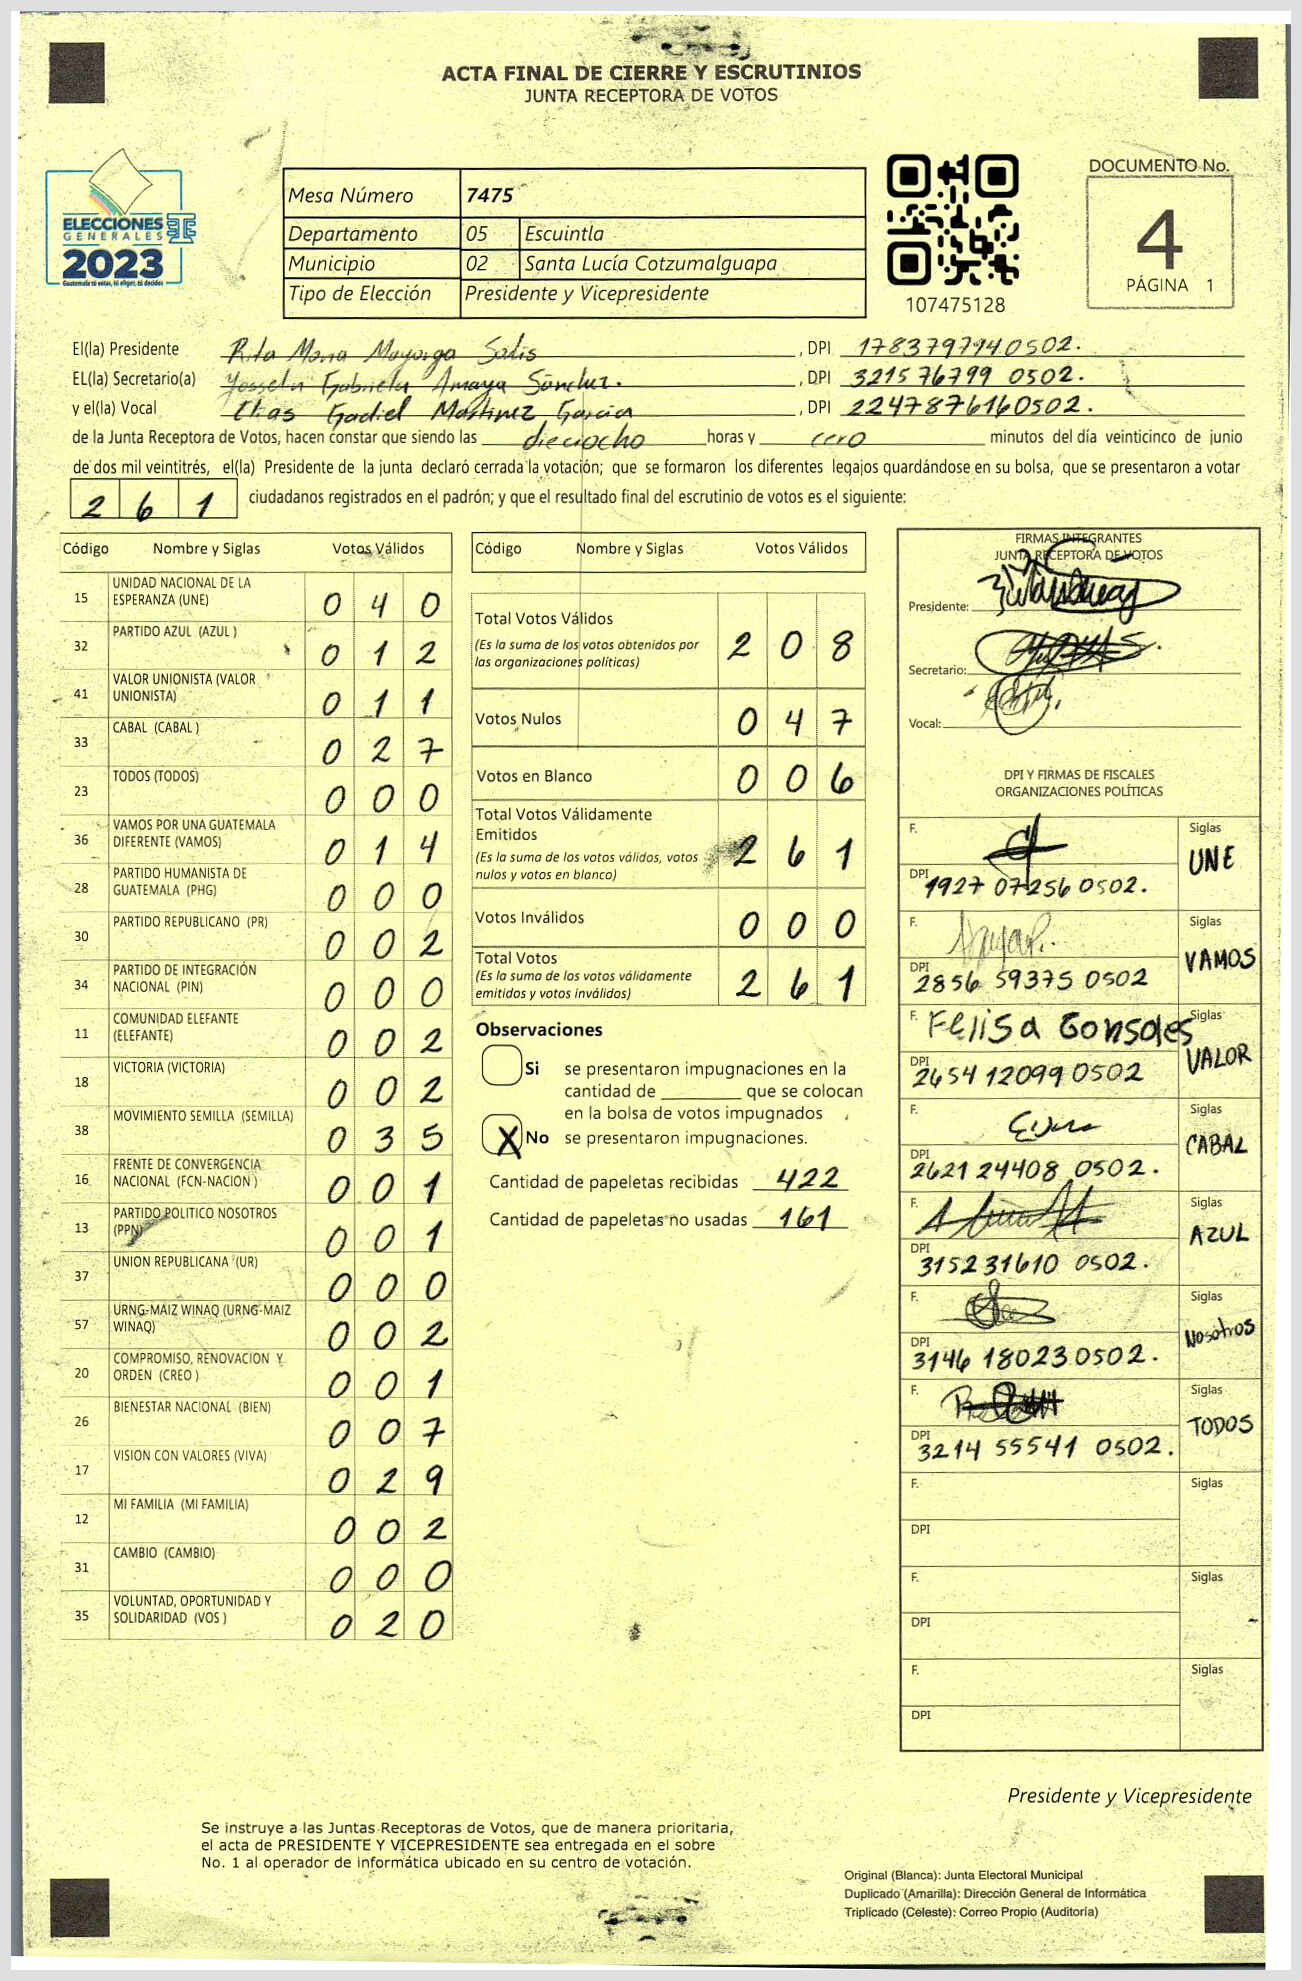 ACTA FINAL DE CIERRE Y ESCRUTINIOS
JUNTA RECEPTORA DE VOTOS
ELECCIONES
GENERALES
2023
Guatemala tú votas, tú eliges, tú decides
Mesa Número 7475
Departamento 05 Escuintla
Municipio 02 Santa Lucía Cotzumalguapa
Tipo de Elección Presidente y Vicepresidente
107475128
DOCUMENTO No.
4
PÁGINA 1
El(la) Presidente Rita Maria Mayorga Solis, DPI 1783797940502.
EL(la) Secretario(a) Yosselin Gabriela Amaya Sánchez., DPI 321576799 0502.
y el(la) Vocal Elias Gadiel Martinez Garcia, DPI 2247876160502.
de la Junta Receptora de Votos, hacen constar que siendo las dieciocho horas y cero minutos del día veinticinco de junio
de dos mil veintitrés, el(la) Presidente de la junta declaró cerrada la votación; que se formaron los diferentes legajos guardándose en su bolsa, que se presentaron a votar
2 6 1 ciudadanos registrados en el padrón; y que el resultado final del escrutinio de votos es el siguiente:
Código Nombre y Siglas Votos Válidos
15 UNIDAD NACIONAL DE LA ESPERANZA (UNE) 0 4 0
32 PARTIDO AZUL (AZUL ) 0 1 2
41 VALOR UNIONISTA (VALOR UNIONISTA) 0 1 1
33 CABAL (CABAL ) 0 2 7
23 TODOS (TODOS) 0 0 0
36 VAMOS POR UNA GUATEMALA DIFERENTE (VAMOS) 0 1 4
28 PARTIDO HUMANISTA DE GUATEMALA (PHG) 0 0 0
30 PARTIDO REPUBLICANO (PR) 0 0 2
34 PARTIDO DE INTEGRACIÓN NACIONAL (PIN) 0 0 0
11 COMUNIDAD ELEFANTE (ELEFANTE) 0 0 2
18 VICTORIA (VICTORIA) 0 0 2
38 MOVIMIENTO SEMILLA (SEMILLA) 0 3 5
16 FRENTE DE CONVERGENCIA NACIONAL (FCN-NACION ) 0 0 1
13 PARTIDO POLITICO NOSOTROS (PPN) 0 0 1
37 UNION REPUBLICANA (UR) 0 0 0
57 URNG-MAIZ WINAQ (URNG-MAIZ WINAQ) 0 0 2
20 COMPROMISO, RENOVACION Y ORDEN (CREO ) 0 0 1
26 BIENESTAR NACIONAL (BIEN) 0 0 7
17 VISION CON VALORES (VIVA) 0 2 9
12 MI FAMILIA (MI FAMILIA) 0 0 2
31 CAMBIO (CAMBIO) 0 0 0
35 VOLUNTAD, OPORTUNIDAD Y SOLIDARIDAD (VOS ) 0 2 0
Código Nombre y Siglas Votos Válidos
Total Votos Válidos 2 0 8
(Es la suma de los votos obtenidos por
las organizaciones políticas)
Votos Nulos 0 4 7
Votos en Blanco 0 0 6
Total Votos Válidamente
Emitidos 2 6 1
(Es la suma de los votos válidos, votos
nulos y votos en blanco)
Votos Inválidos 0 0 0
Total Votos 2 6 1
(Es la suma de los votos válidamente
emitidos y votos inválidos)
Observaciones
Si se presentaron impugnaciones en la
cantidad de ________ que se colocan
en la bolsa de votos impugnados
X No se presentaron impugnaciones.
Cantidad de papeletas recibidas 422
Cantidad de papeletas no usadas 161
FIRMAS INTEGRANTES
JUNTA RECEPTORA DE VOTOS
Presidente:
Secretario:
Vocal:
DPI Y FIRMAS DE FISCALES
ORGANIZACIONES POLÍTICAS
F. Siglas UNE
DPI 1927 07256 0502.
F. Siglas VAMOS
DPI 2856 59375 0502
F. Felisa Gonsales Siglas VALOR
DPI 2654 12099 0502
F. Siglas CABAL
DPI 2621 24408 0502.
F. Siglas AZUL
DPI 315231610 0502.
F. Siglas Nosotros
DPI 3146 18023 0502.
F. Siglas TODOS
DPI 3214 55541 0502.
F. Siglas
DPI
F. Siglas
DPI
F. Siglas
DPI
Presidente y Vicepresidente
Se instruye a las Juntas Receptoras de Votos, que de manera prioritaria,
el acta de PRESIDENTE Y VICEPRESIDENTE sea entregada en el sobre
No. 1 al operador de informática ubicado en su centro de votación.
Original (Blanca): Junta Electoral Municipal
Duplicado (Amarilla): Dirección General de Informática
Triplicado (Celeste): Correo Propio (Auditoría)